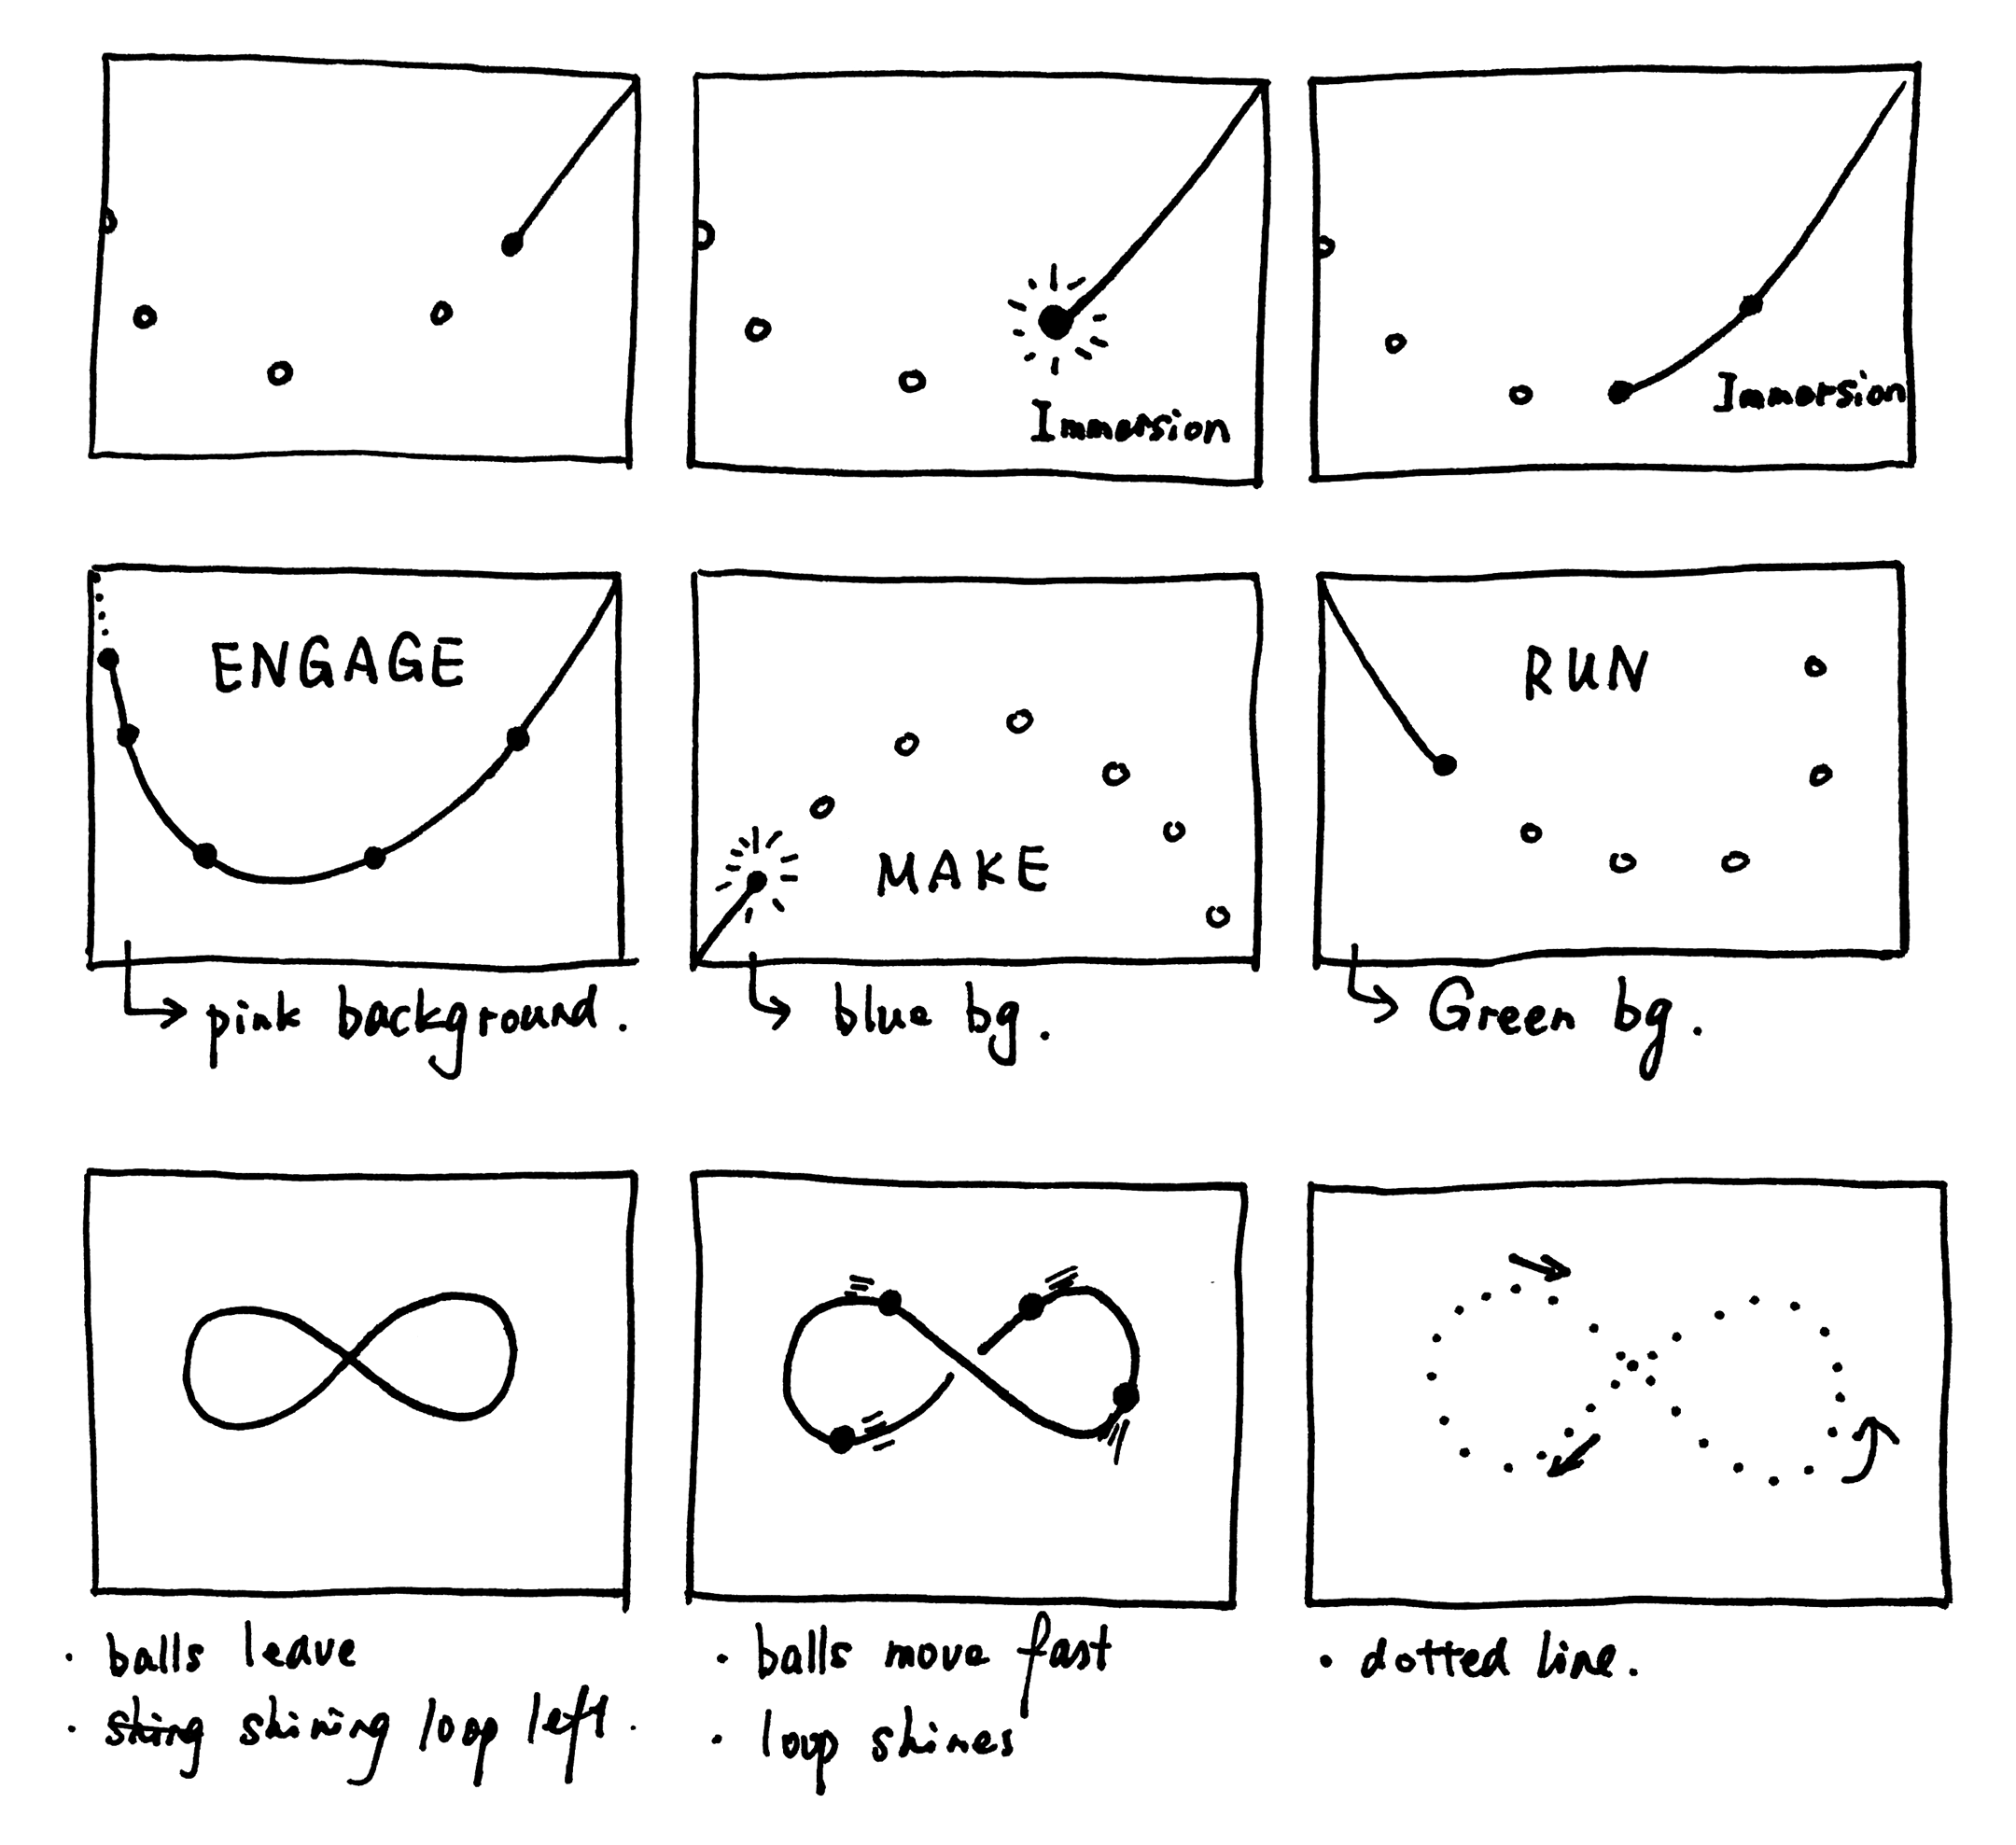 Immersion
Immersion
ENGAGE
MAKE
RUN
pink background.
blue bg.
Green bg.
· balls leave
· string shining loop left.
· balls move fast
· loop shines
· dotted line.